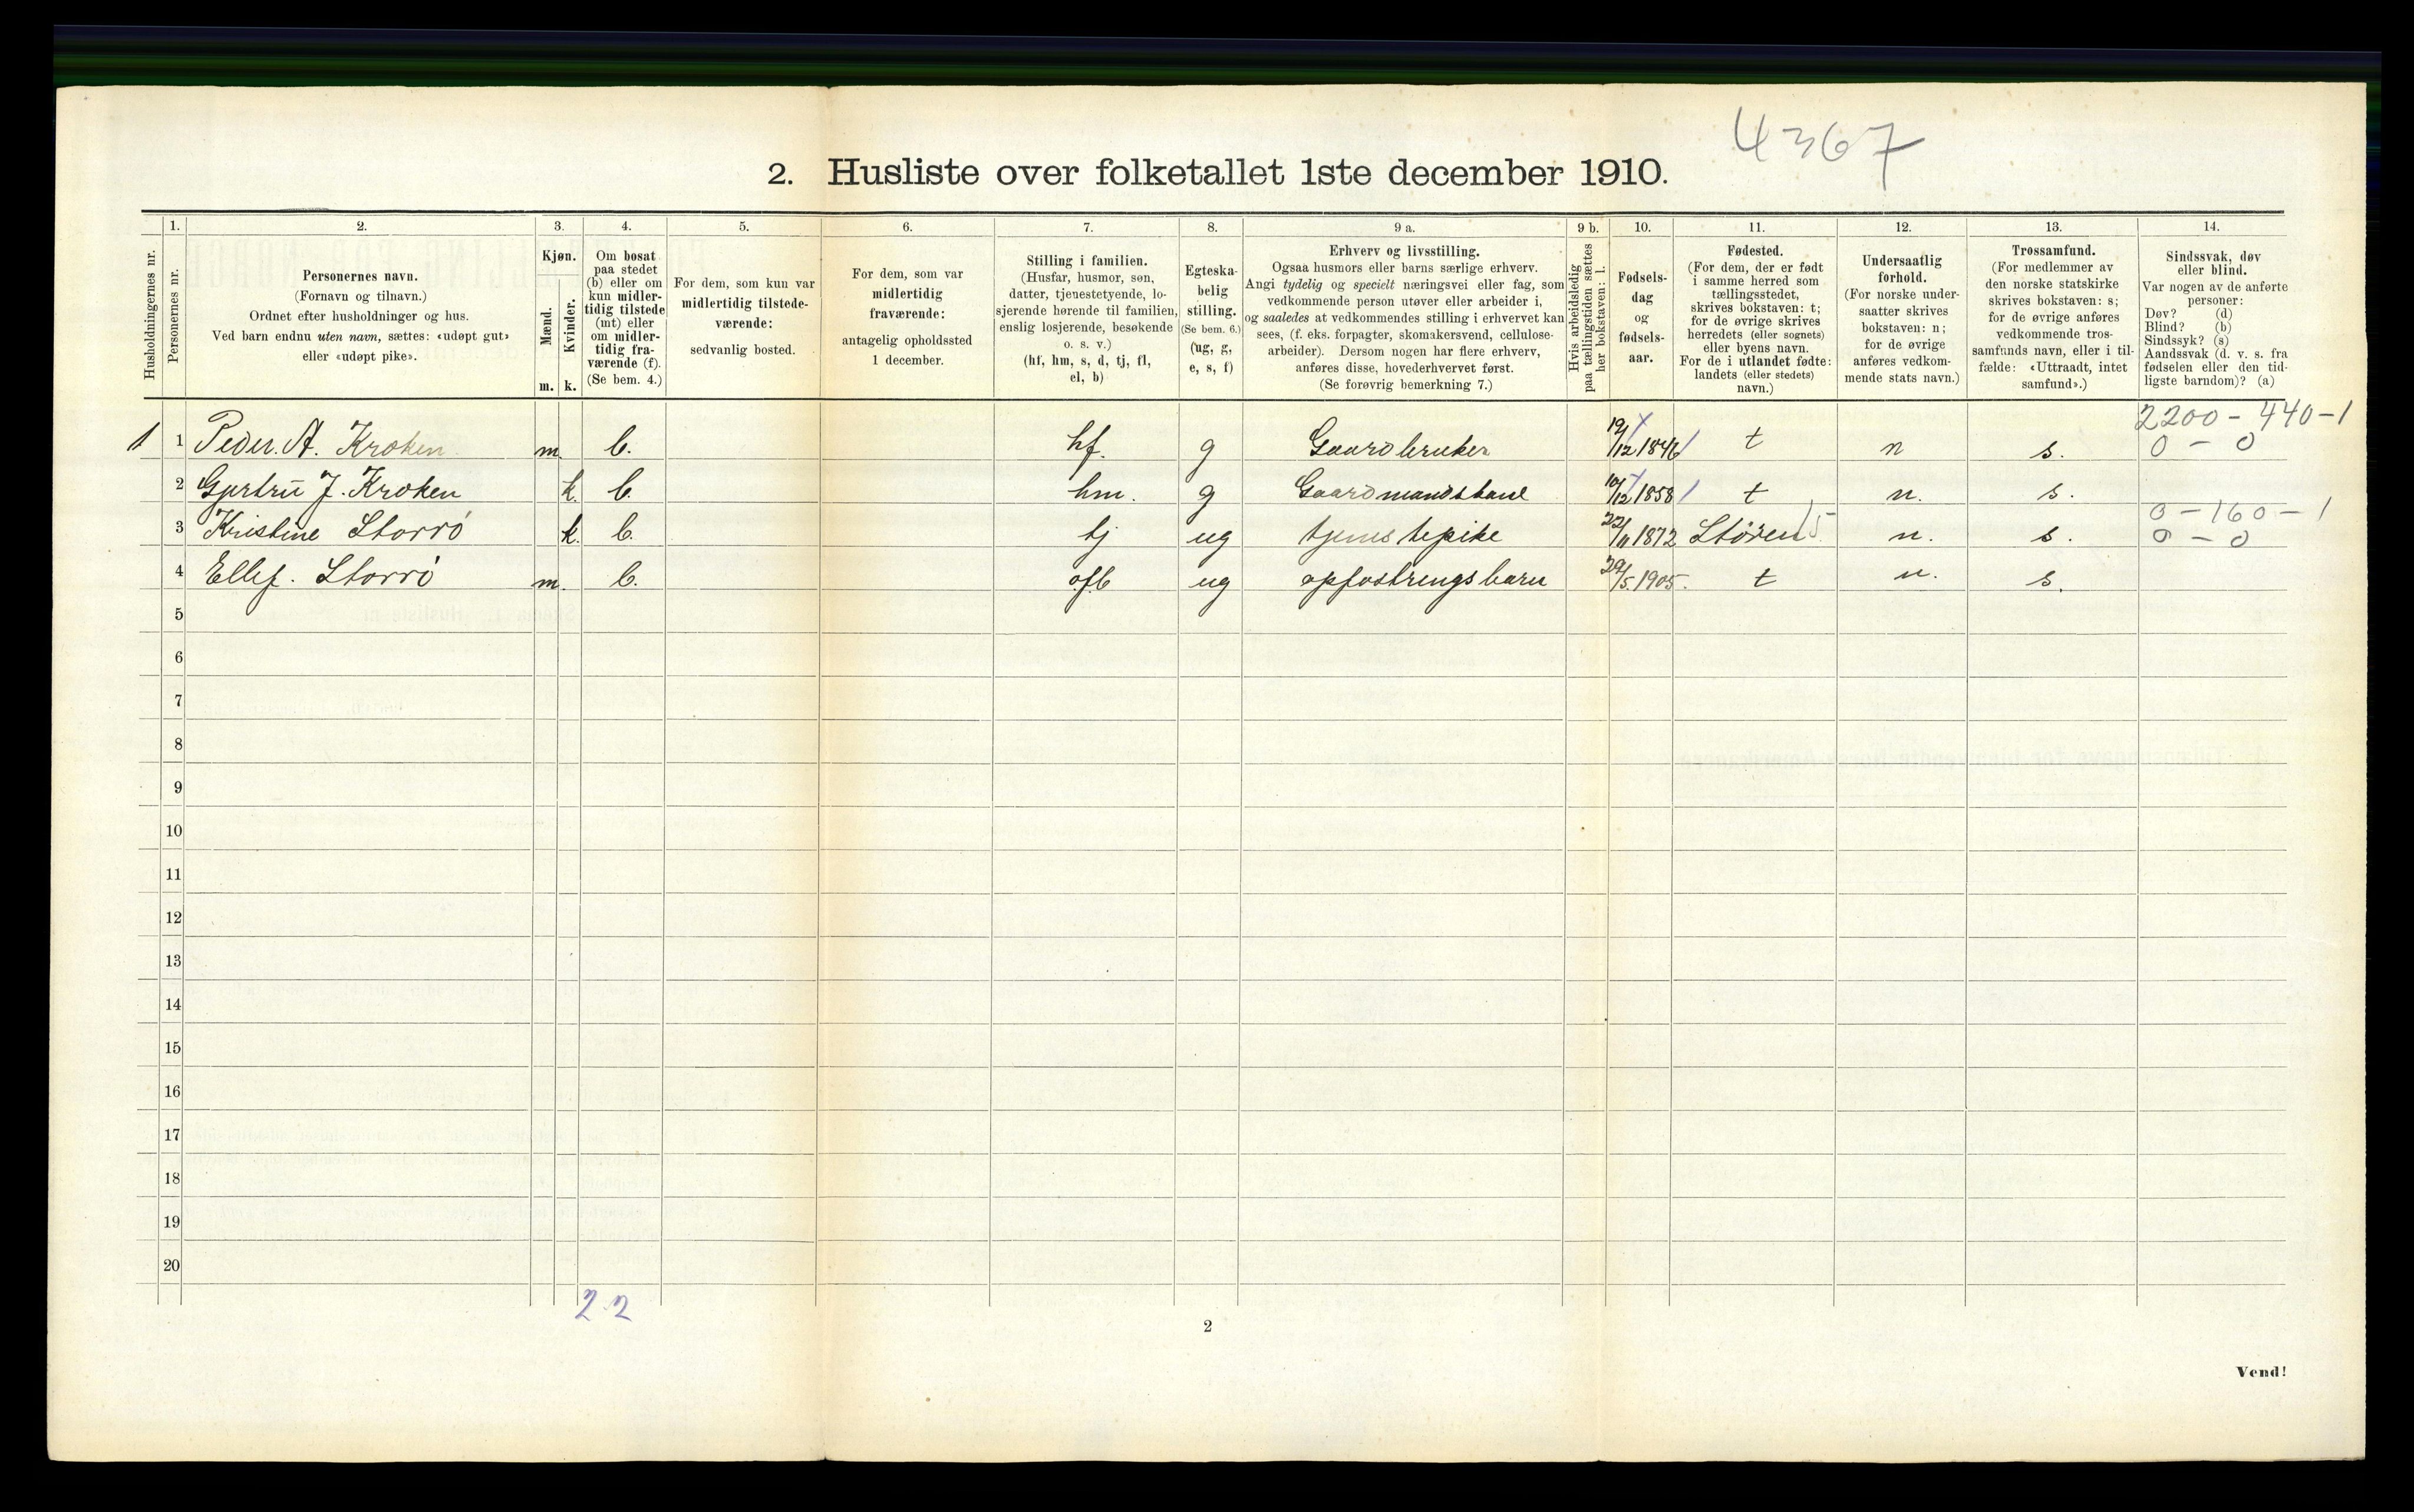 4367
2. Husliste over folketallet 1ste december 1910.
Husholdningernes nr.
1.
Personernes nr.
2.
Personernes navn.
(Fornavn og tilnavn.)
Ordnet efter husholdninger og hus.
Ved barn endnu uten navn, sættes: «udøpt gut»
eller «udøpt pike».
3.
Kjøn.
Mænd.
Kvinder.
m. k.
4.
Om bosat
paa stedet
(b) eller om
kun midler-
tidig tilstede
(mt) eller
om midler-
tidig fra-
værende (f).
(Se bem. 4.)
5.
For dem, som kun var
midlertidig tilstede-
værende:
sedvanlig bosted.
6.
For dem, som var
midlertidig
fraværende:
antagelig opholdssted
1 december.
7.
Stilling i familien.
(Husfar, husmor, søn,
datter, tjenestetyende, lo-
sjerende hørende til familien,
enslig losjerende, besøkende
o. s. v.)
(hf, hm, s, d, tj, fl,
el, b)
8.
Egteska-
belig
stilling.
(Se bem. 6.)
(ug, g,
e, s, f)
9 a.
Erhverv og livsstilling.
Ogsaa husmors eller barns særlige erhverv.
Angi tydelig og specielt næringsvei eller fag, som
vedkommende person utøver eller arbeider i,
og saaledes at vedkommendes stilling i erhvervet kan
sees, (f. eks. forpagter, skomakersvend, cellulose-
arbeider). Dersom nogen har flere erhverv,
anføres disse, hovederhvervet først.
(Se forøvrig bemerkning 7.)
9 b.
Hvis arbeidsledig
paa tællingstiden sættes
her bokstaven: l.
10.
Fødsels-
dag
og
fødsels-
aar.
11.
Fødested.
(For dem, der er født
i samme herred som
tællingsstedet,
skrives bokstaven: t;
for de øvrige skrives
herredets (eller sognets)
eller byens navn.
For de i utlandet fødte:
landets (eller stedets)
navn.)
12.
Undersaatlig
forhold.
(For norske under-
saatter skrives
bokstaven: n;
for de øvrige
anføres vedkom-
mende stats navn.)
13.
Trossamfund.
(For medlemmer av
den norske statskirke
skrives bokstaven: s;
for de øvrige anføres
vedkommende tros-
samfunds navn, eller i til-
fælde: «Uttraadt, intet
samfund».)
14.
Sindssvak, døv
eller blind.
Var nogen av de anførte
personer:
Døv? (d)
Blind? (b)
Sindssyk? (s)
Aandssvak (d. v. s. fra
fødselen eller den tid-
ligste barndom)? (a)
2200 - 440 - 1
1 1 Peder. A. Kroken m. b. hf. g Gaardbruker 19/12 1846 t n s. 0 - 0
2 Gjertru J. Kroken k. b. hm. g Gaardmandskone 10/12 1858 t n. s.
0 - 160 - 1
3 Kristine Storrö k. b. tj ug tjenestepike 22/11 1872 Støren n. s. 0 - 0
4 Ellef. Storrö m. b. ofb ug opfostringsbarn 29/5. 1905. t n. s.
5
6
7
8
9
10
11
12
13
14
15
16
17
18
19
20
2 2
2
Vend!